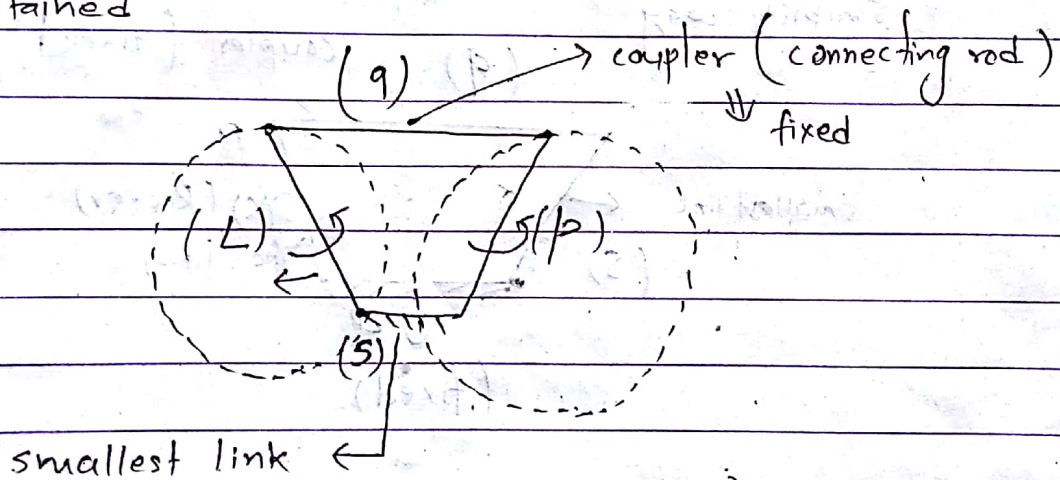 tained
(q) coupler (connecting rod)
⇓ fixed
(L) (p)
(S)
smallest link